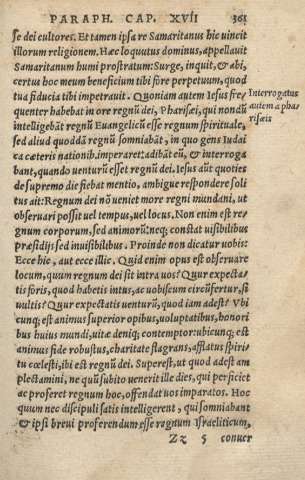 PARAPH. CAP. XVII 361
se dei cultores. Et tamen ipsa re Samaritanus hic uincit
illorum religionem. Hæc loquutus dominus, appellauit
Samaritanum humi prostratum: Surge, inquit, & abi,
certus hoc meum beneficium tibi fore perpetuum, quod
tua fiducia tibi impetrauit. Quoniam autem Iesus fre-
quenter habebat in ore regnū dei, Pharisæi, qui nondū
intelligebāt regnū Euangelicū esse regnum spirituale,
sed aliud quoddā regnū somniabāt, in quo gens Iudai
ca cæteris nationib. imperaret: adibāt eū, & interroga
bant, quando uenturū esset regnū dei. Iesus aūt quoties
de supremo die fiebat mentio, ambigue respondere soli
tus ait: Regnum dei nō ueniet more regni mundani, ut
obseruari possit uel tempus, uel locus. Non enim est re-
gnum corporum, sed animorū: neq; constat uisibilibus
præsidijs sed inuisibilibus. Proinde non dicatur uobis:
Ecce hic, aut ecce illic. Quid enim opus est obseruare
locum, quum regnum dei sit intra uos? Quur expecta-
tis foris, quod habetis intus, ac uobiscum circūfertur, si
uultis? Quur expectatis uenturū, quod iam adest? Vbi
cunq; est animus superior opibus, uoluptatibus, honori
bus huius mundi, uitæ deniq; contemptor: ubicunq; est
animus fide robustus, charitate flagrans, afflatus spiri-
tu cœlesti, ibi est regnū dei. Superest, ut quod adest am
plectamini, ne quū subito uenerit ille dies, qui perficiet
ac proferet regnum hoc, offendat uos imparatos. Hoc
quum nec discipuli satis intelligerent, qui somniabant
& ipsi breui proferendum esse regnum Israëliticum,
Zz 5 conuer
Interrogatus
autem a pha
risæis